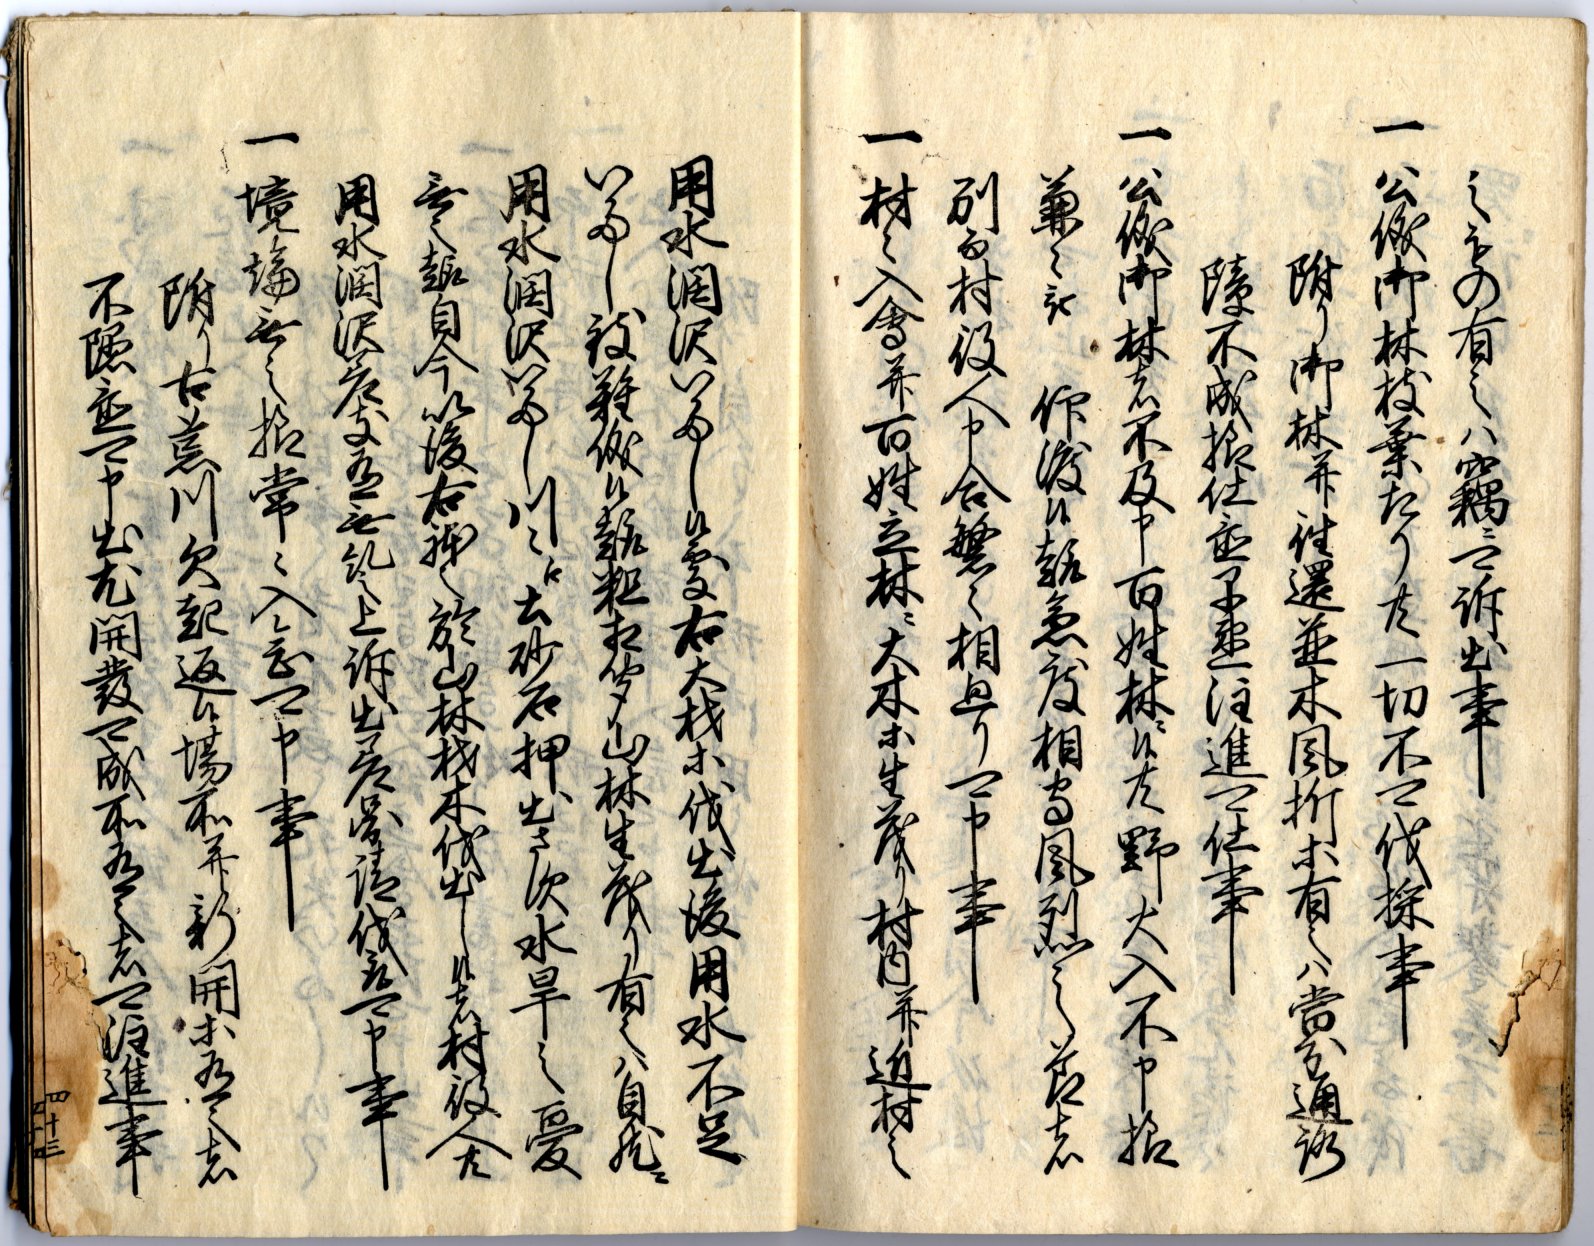 之もの有之ハ竊ニ可訴出事
一 公儀御林枝葉たり共一切不可伐採事
附り御林并往還並木風折等有之ハ当分通路
障不成様仕置早速注進可仕事
一 公儀御林者不及申百姓林ニ候共野火入不申様
兼々被 仰渡候趣急度相守風烈之節者
別而村役人申合繁々相廻り可申事
一 村々入会并百姓立林ニ大木等生茂り村内并近村之
用水潤沢いたし候処右大材等伐出後用水不足
いたし致難儀候趣粗相聞山林生茂り有之ハ自然ニ
用水潤沢いたし川々江土砂石押出さす水旱之憂
無之趣自今以後右躰之於山林材木伐出し候者村役人共
用水潤沢差支有無糺之上訴出差図請伐取可申事
一 境論無之様常々入念可申事
附り古荒川欠起返候場所并新開等有之者
不隠置可申出尤開発可成所有之者可注進事
四十三